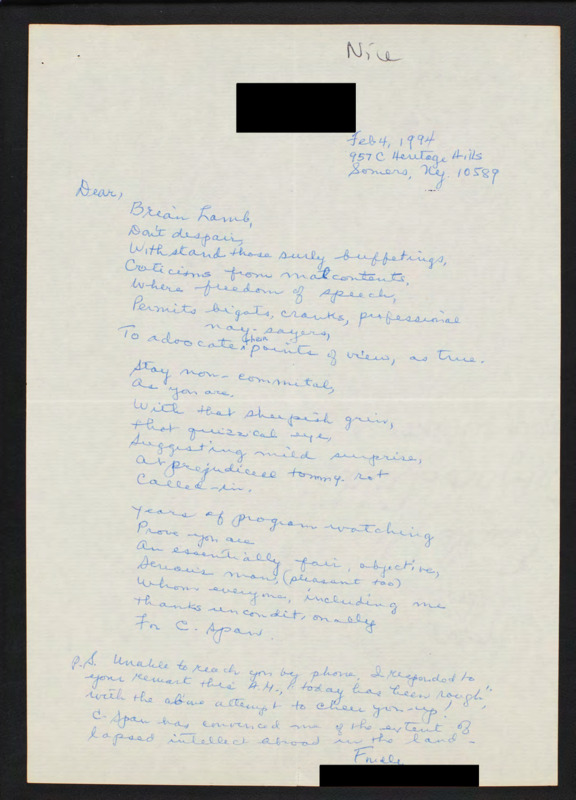 Nice
Feb 4, 1994
957 C Heritage Hills
Somers, Ny. 10589
Dear,
Brian Lamb,
Don't despair,
Withstand those surly buffetings,
Criticisms from malcontents,
Where freedom of speech,
Permits bigots, cranks, professional
nay-sayers,
To advocate their points of view, as true.
Stay non-commital,
As you are.
With that sheepish grin,
that quizzical eye,
Suggesting mild surprise,
at prejudiced tommy-rot
Called-in.
Years of program watching
Prove you are
An essentially fair, objective,
Serious man, (pleasant too)
Whom everyone, including me
thanks unconditionally
For C. Span.
P.S. Unable to reach you by phone, I responded to
your remark this A.M., "today has been rough",
with the above attempt to cheer you-up!
C-Span has convinced me of the extent of
lapsed intellect abroad in the land-